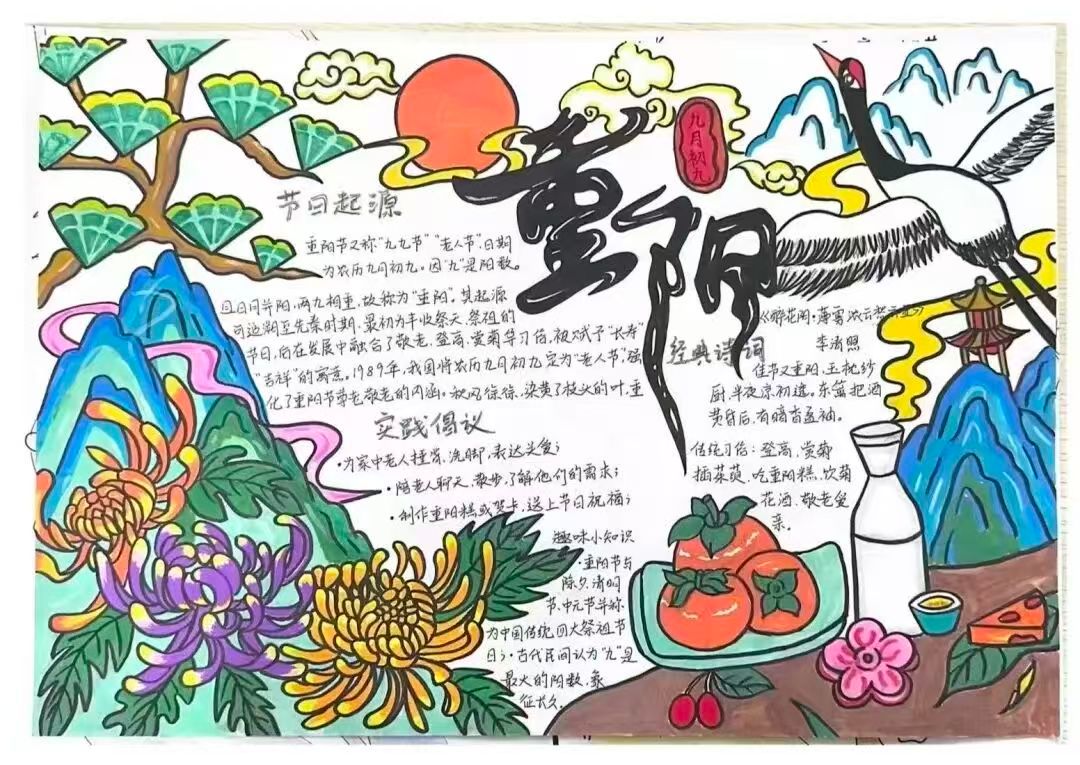 重阳
九月初九
节日起源
重阳节又称"九九节""老人节",日期
为农历九月初九。因"九"是阳数。
且日月并阳,两九相重,故称为"重阳"。其起源
可追溯至先秦时期,最初为丰收祭天、祭祖的
节日,后在发展中融合了敬老、登高、赏菊等习俗,被赋予"长寿"
"吉祥"的寓意。1989年,我国将农历九月初九定为"老人节"强
化了重阳节尊老敬老的内涵。秋风徐徐,染黄了枝头的叶,重
实践倡议
·为家中老人捶背、洗脚,表达关爱;
·陪老人聊天、散步,了解他们的需求;
·制作重阳糕或贺卡,送上节日祝福;
趣味小知识
·重阳节与
除夕、清明
节、中元节并称
为中国传统四大祭祖节
日;·古代民间认为"九"是
最大的阳数,象
征长久。
经典诗词
《醉花阴·薄雾浓云愁永昼》
李清照
佳节又重阳,玉枕纱
厨,半夜凉初透。东篱把酒
黄昏后,有暗香盈袖。
传统习俗:登高、赏菊
插茱萸、吃重阳糕、饮菊
花酒、敬老爱
亲。